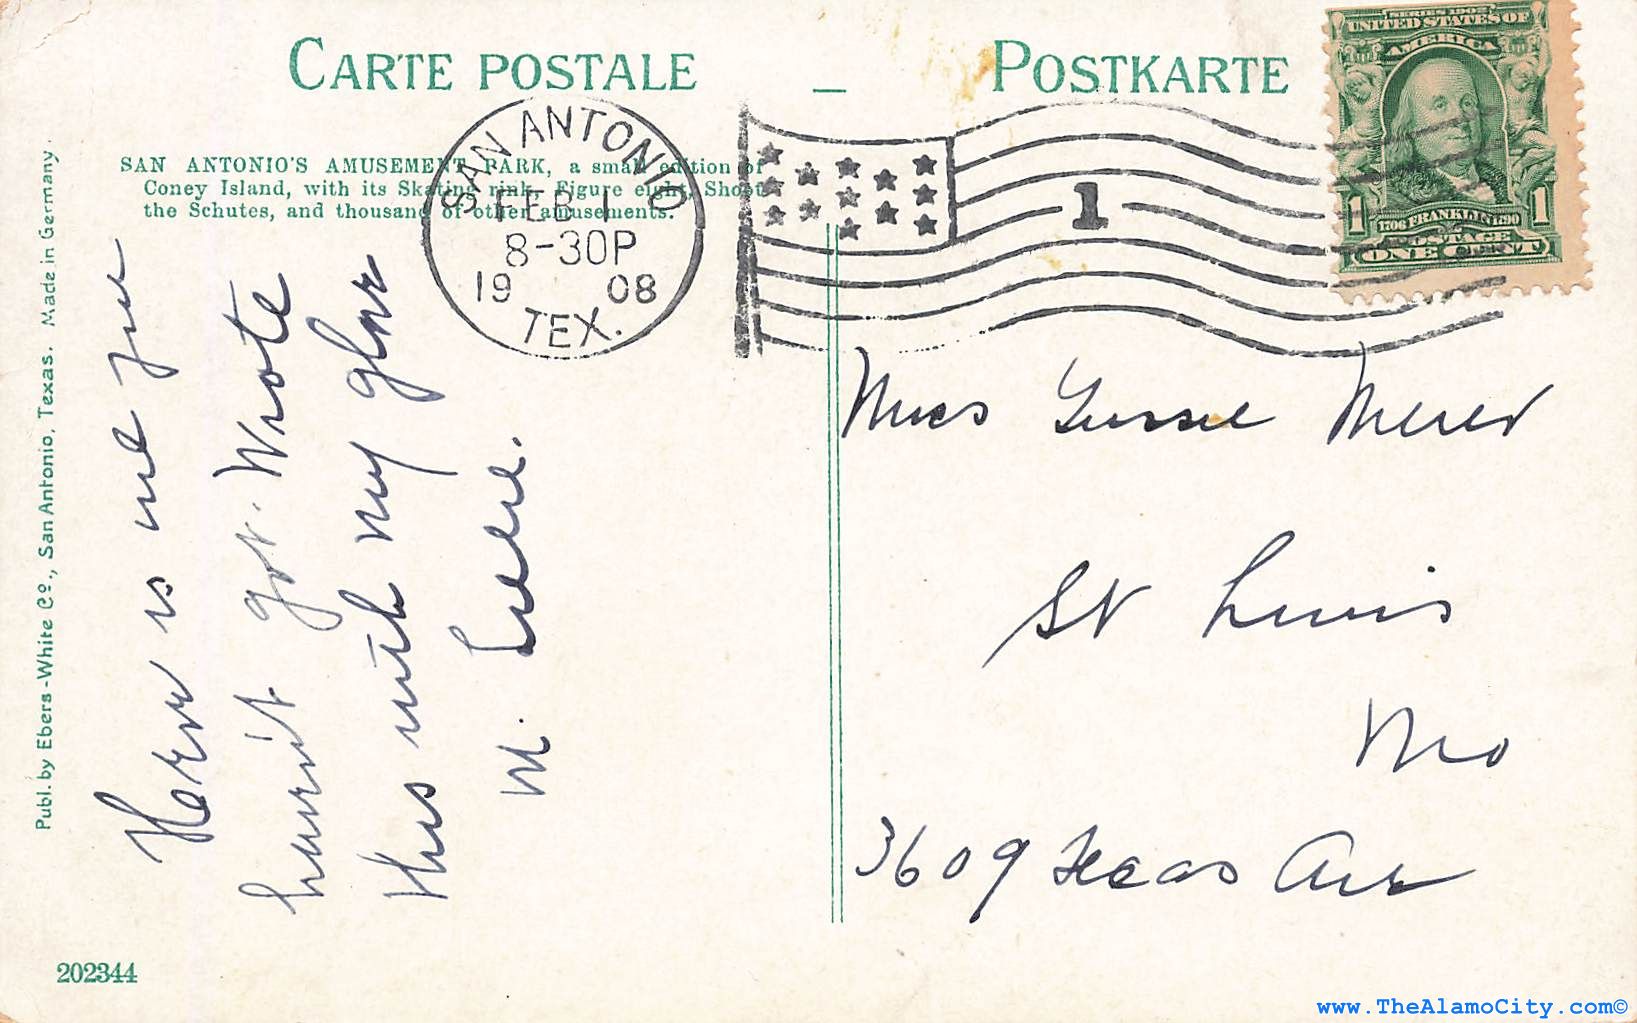 CARTE POSTALE — POSTKARTE
SERIES 1902
UNITED STATES OF
AMERICA
1 1706 FRANKLIN 1790 1
POSTAGE
ONE CENT
SAN ANTONIO
FEB 1
8-30P
19 08
TEX.
1
SAN ANTONIO'S AMUSEMENT PARK, a small edition of
Coney Island, with its Skating rink, Figure eight, Shoot
the Schutes, and thousand of other amusements.
Publ. by Ebers-White Co., San Antonio, Texas. Made in Germany.
Here is one you
haven't got. Wrote
this with my glove
M.
Miss Gussie
St Louis
Mo
3609 Texas Ave
202344
www.TheAlamoCity.com©